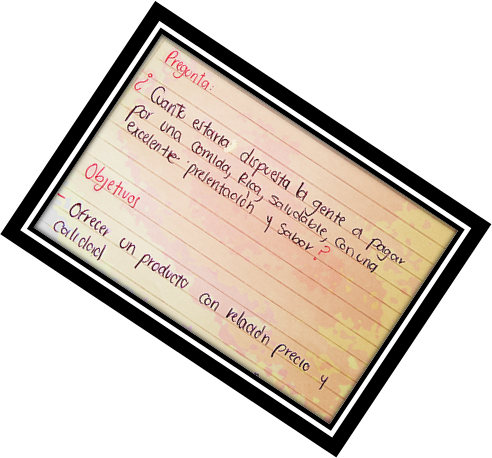 Pregunta:
¿ Cuanto estaria dispuesta la gente a pagar
por una comida, Rica, saludable, con una
excelente presentación y Sabor ?
Objetivos
- Ofrecer un producto con relación precio y
calidad